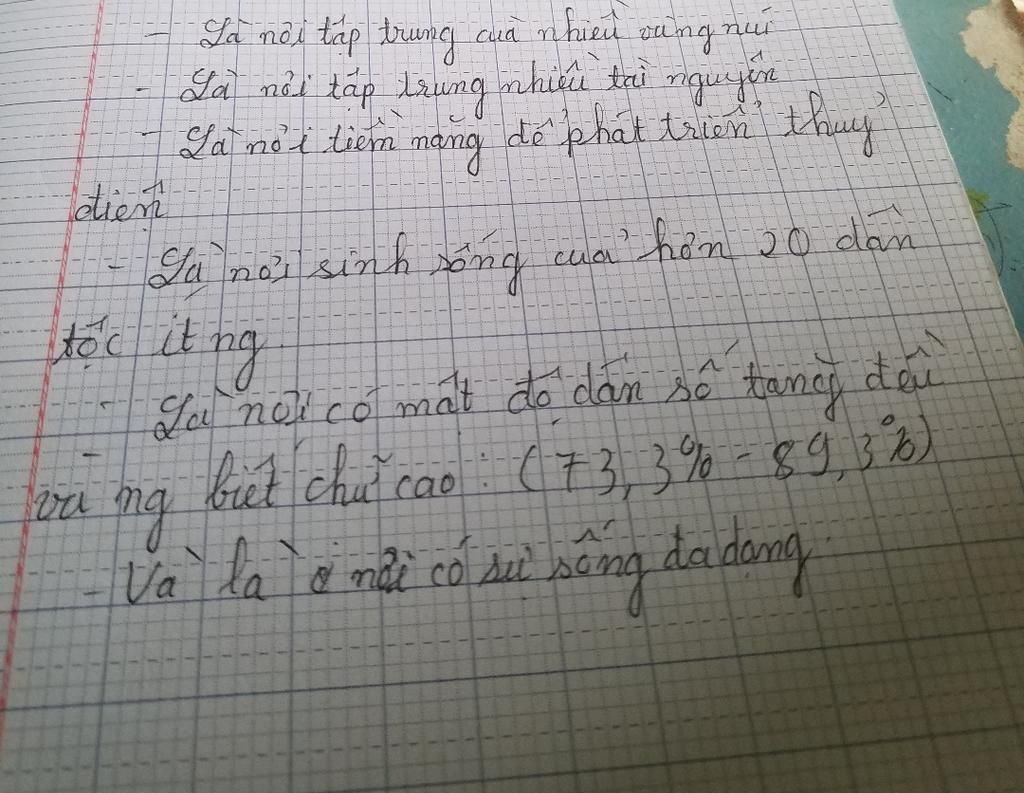 - Là nơi tập trung của nhiều vùng núi
- Là nơi tập trung nhiều tài nguyên
- Là nơi tiềm năng để phát triển thuỷ
điện
- Là nơi sinh sống của hơn 20 dân
tộc ít ng
- Là nơi có mật độ dân số tăng đều
và ng biết chữ cao : (73,3% - 89,3%)
- Và là nơi có sự sống đa dạng.